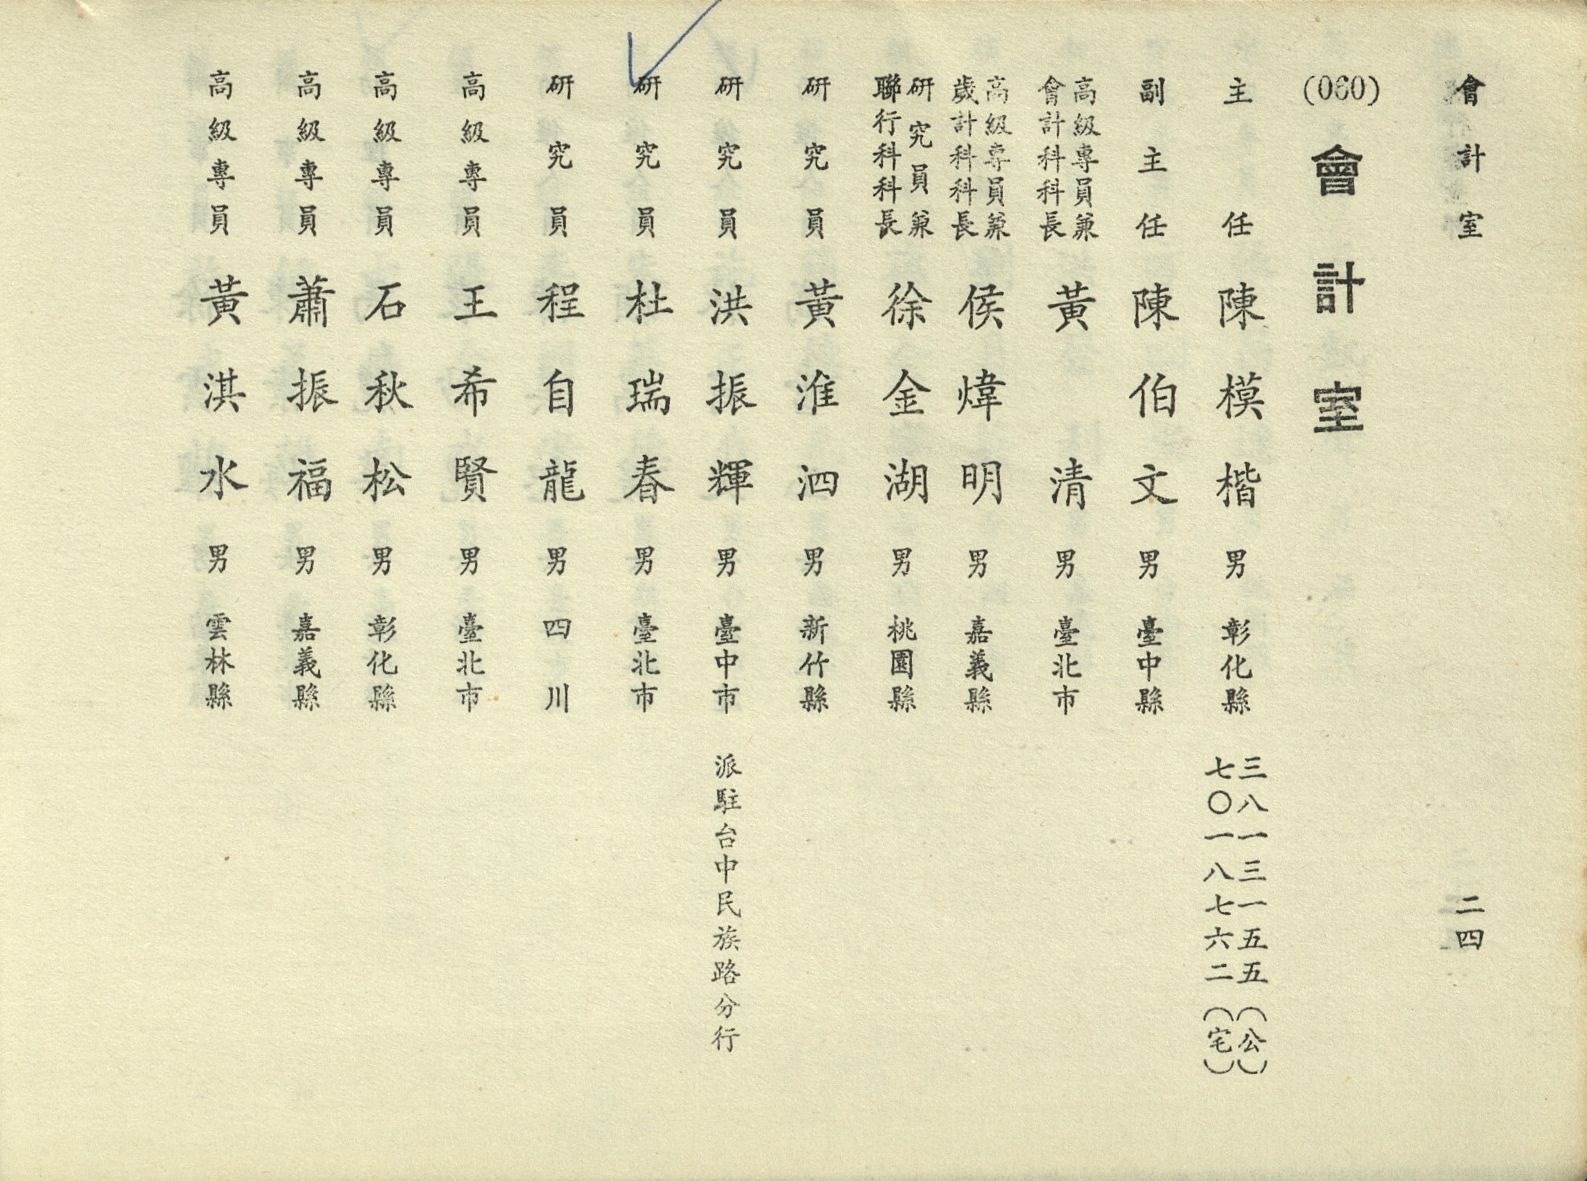 會計室
二四
(060)
會計室
主任 陳模楷 男 彰化縣 三八一三一五五(公)
七〇一八七六二(宅)
副主任 陳伯文 男 臺中縣
高級專員兼會計科科長 黃清 男 臺北市
高級專員兼歲計科科長 侯煒明 男 嘉義縣
研究員兼聯行科科長 徐金湖 男 桃園縣
研究員 黃淮泗 男 新竹縣
研究員 洪振輝 男 臺中市 派駐台中民族路分行
研究員 杜瑞春 男 臺北市
研究員 程自龍 男 四川
高級專員 王希賢 男 臺北市
高級專員 石秋松 男 彰化縣
高級專員 蕭振福 男 嘉義縣
高級專員 黃淇水 男 雲林縣